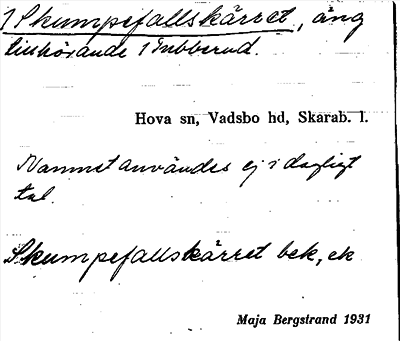 1 Skumpefallskärret, äng
tillhörande 1 Gubberud.
Hova sn, Vadsbo hd, Skarab. l.
Namnet användes ej i dagligt
tal.
Skumpefallskärret bek, ek
Maja Bergstrand 1931